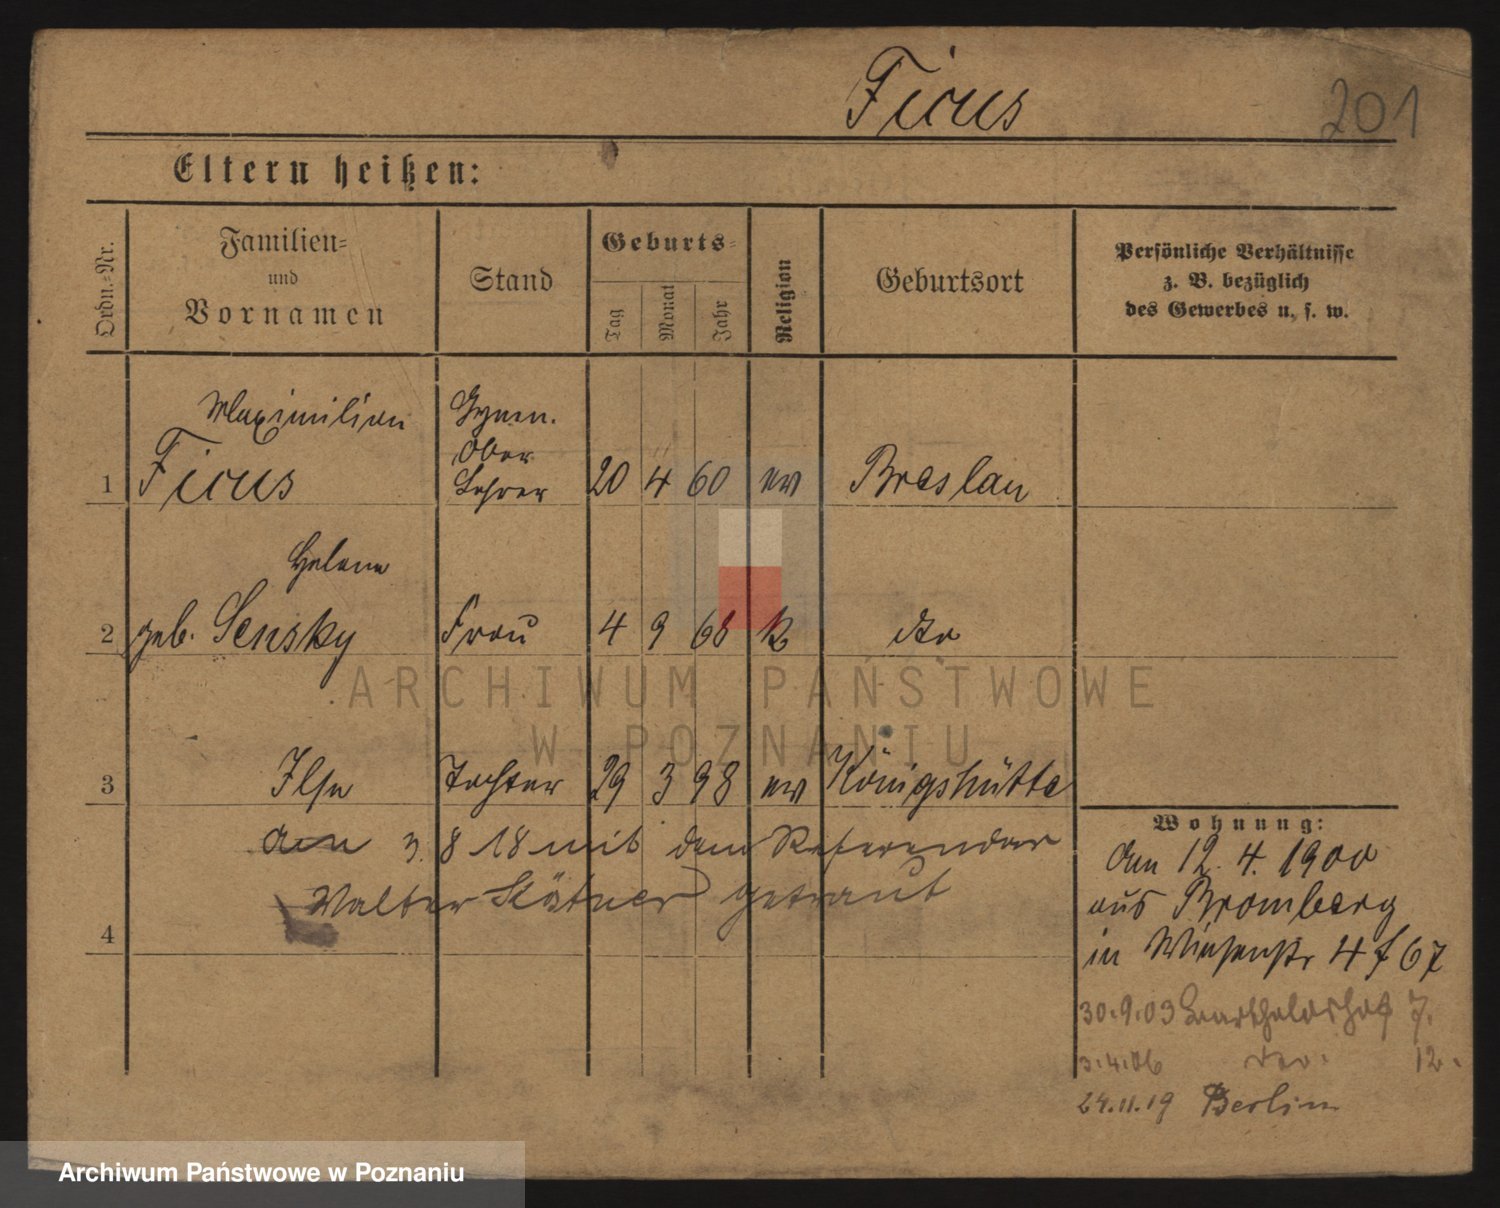 Ficus
201
Eltern heißen:
Ordn.-Nr.
Familien-
und
Vornamen
Stand
Geburts-
Tag
Monat
Jahr
Religion
Geburtsort
Persönliche Verhältnisse
z. B. bezüglich
des Gewerbes u. s. w.
1
Maximilian
Ficus
Gymn.
Ober
Lehrer
20 4 60 ev Breslau
2
Helene
geb. Sensky
Frau
4 9 68 k dto
3
Ilse Tochter 29 3 98 ev Königshütte
am 3. 8 18 mit dem Referendar
Walter getraut
4
Wohnung:
den 12. 4. 1900
aus Bromberg
in Wiesenstr 4 f 67
30.9.03 7.
3.4.06 dto. 12.
24.11.19 Berlin
ARCHIWUM PAŃSTWOWE
W POZNANIU
Archiwum Państwowe w Poznaniu